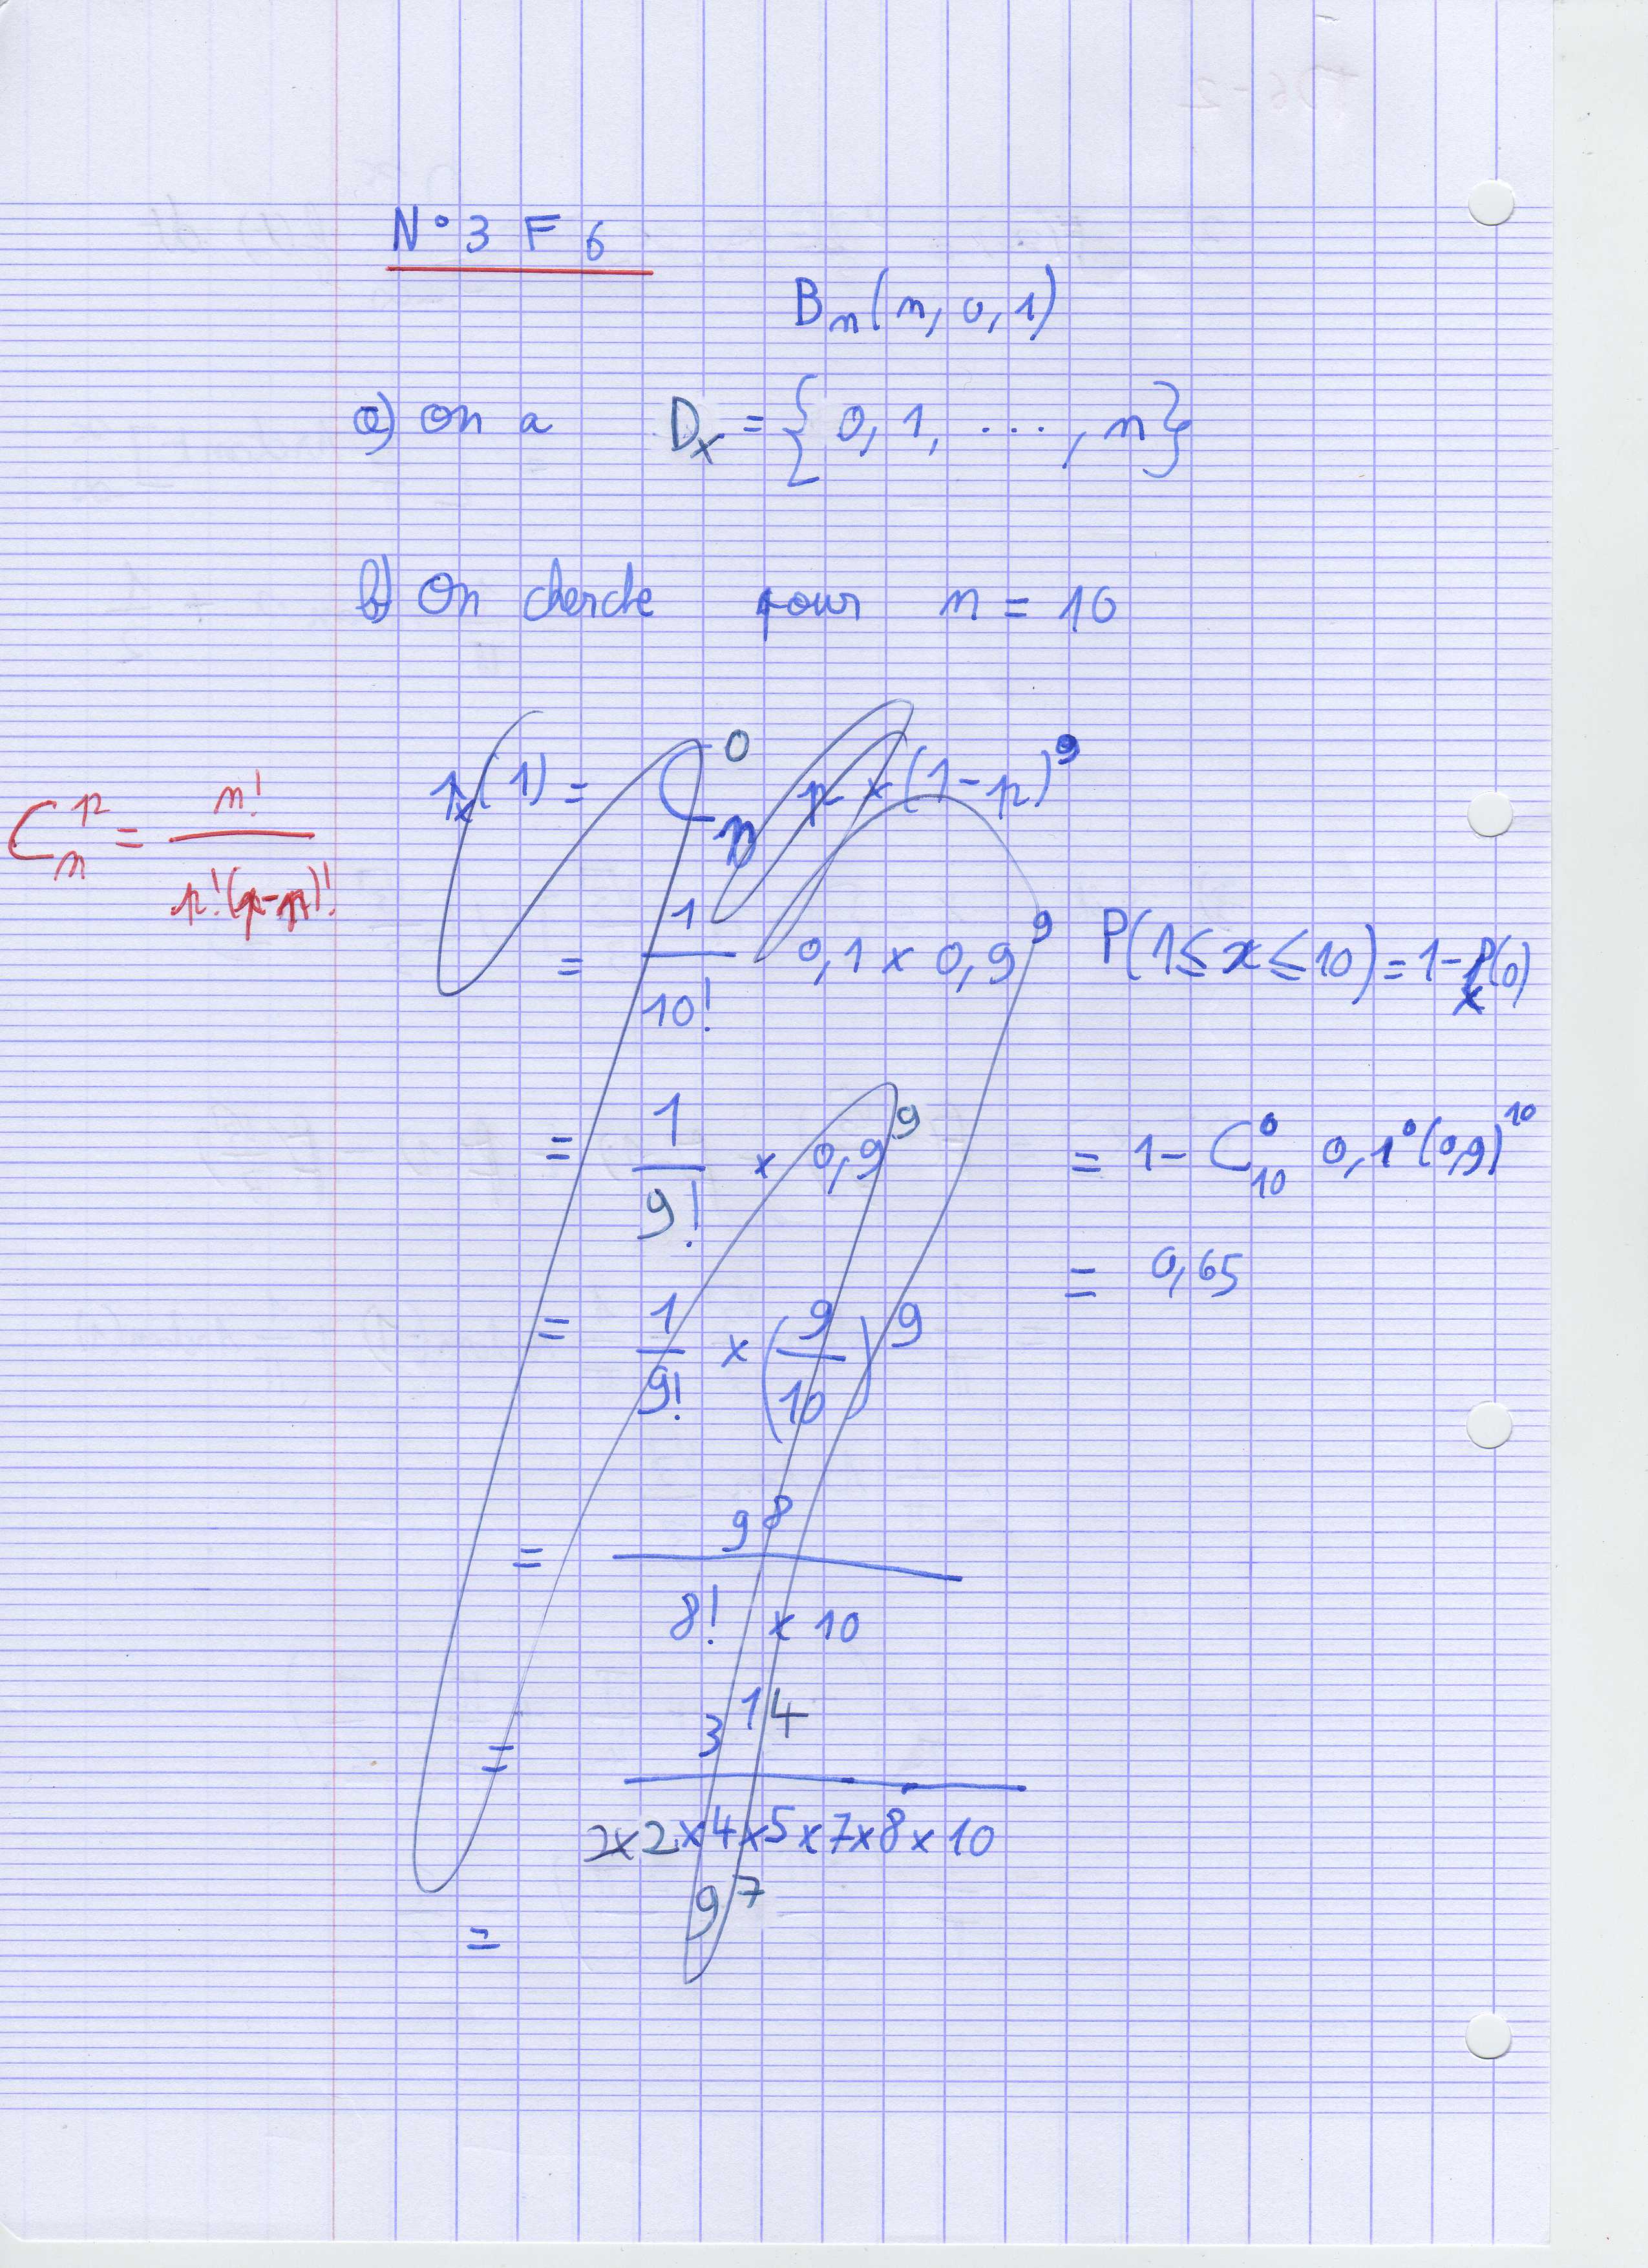 N° 3 F 6
Bn(n, 0,1)
a) On a Dx = {0, 1, ..., n}
b) On cherche pour n = 10
px(1) = C_n^0 p × (1-p)^9
C_n^p = n! / p!(n-p)!
= 1/10! 0,1 × 0,9^9
P(1 ≤ x ≤ 10) = 1 - px(0)
= 1/9! × 0,9^9
= 1 - C_10^0 0,1^0 (0,9)^10
= 0,65
= 1/9! × (9/10)^9
= 9^8 / 8! × 10
= 3^14 / 2×2×4×5×7×8×10
= 9^7